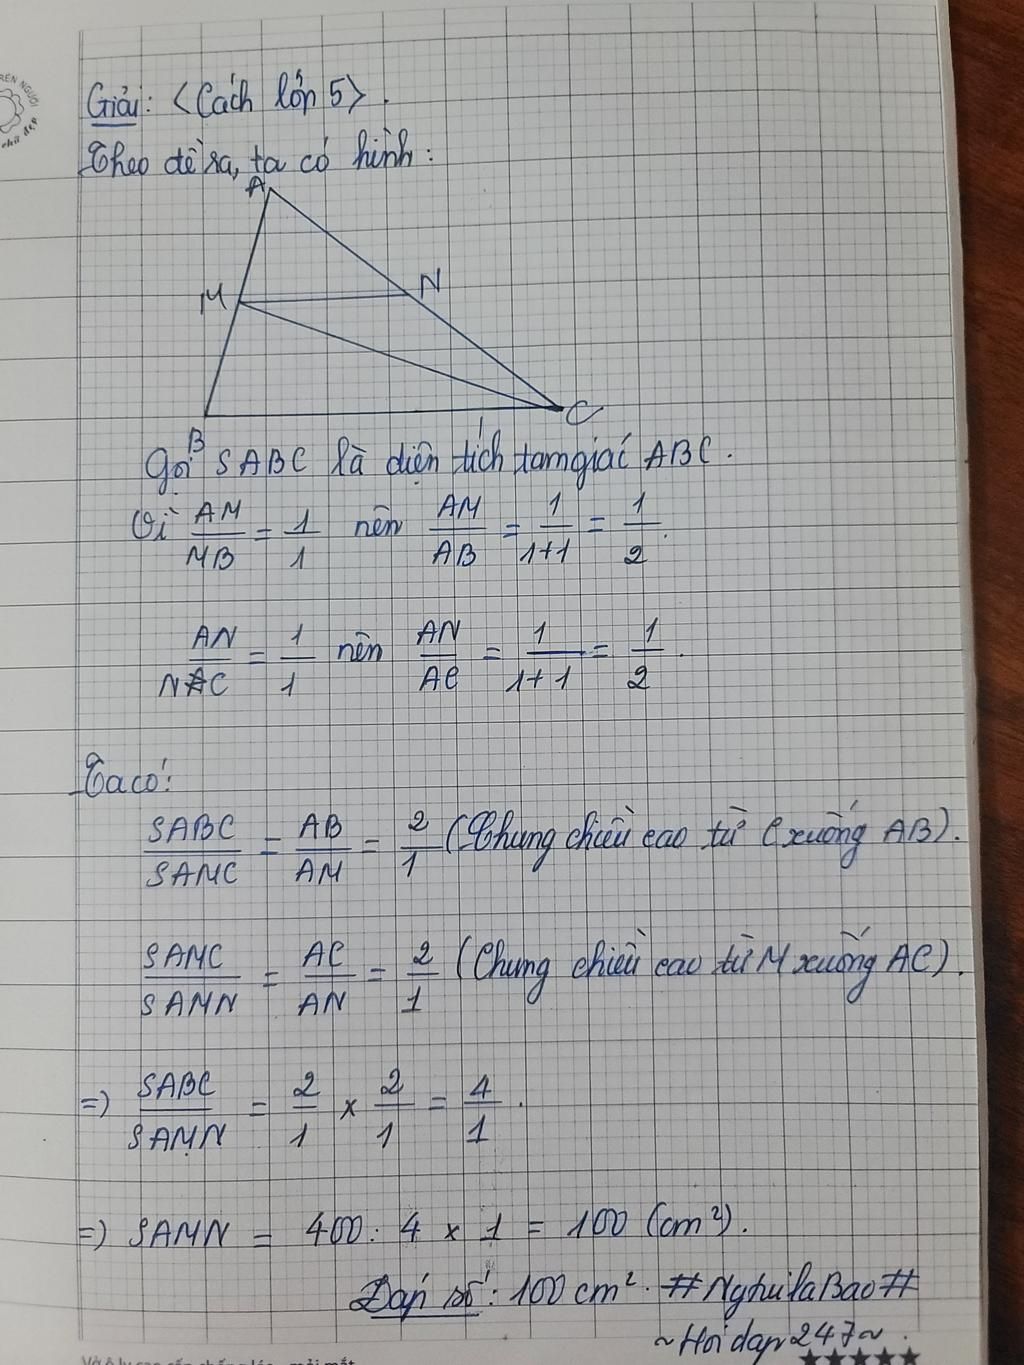 RÈN NGƯỜI
chữ đẹp
Giải: <Cách lớp 5>.
Theo đề ra, ta có hình:
A
M N
B C
Gọi SABC là diện tích tam giác ABC.
Vì AM/MB = 1/1 nên AM/AB = 1/1+1 = 1/2.
AN/NC = 1/1 nên AN/AC = 1/1+1 = 1/2.
Ta có:
SABC/SAMC = AB/AM = 2/1 (Chung chiều cao từ C xuống AB).
SAMC/SAMN = AC/AN = 2/1 (Chung chiều cao từ M xuống AC).
=> SABC/SAMN = 2/1 x 2/1 = 4/1.
=> SAMN = 400 : 4 x 1 = 100 (cm²).
Đáp số: 100 cm². #NghuilaBao#
~Hoidap247~.